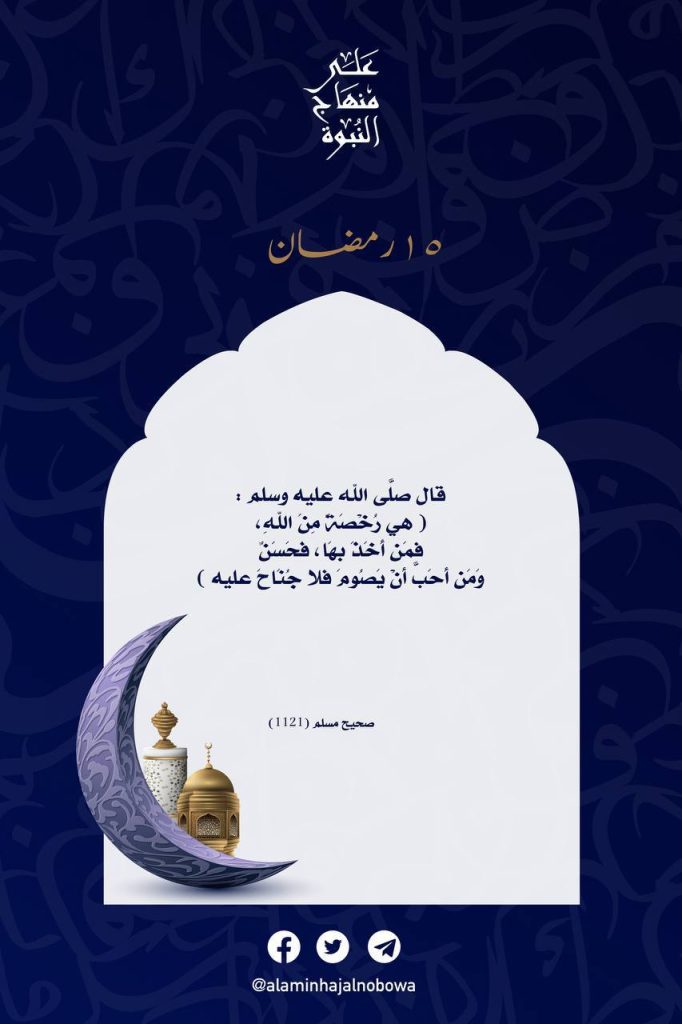 عَلَى
مِنهَاج
النُبوة
١٥ رمضان
قال صلَّى الله عليه وسلم :
( هي رُخْصَةٌ مِنَ اللهِ،
فمَن أخَذَ بهَا، فحَسَنٌ
وَمَن أحَبَّ أنْ يَصُومَ فلا جُنَاحَ عليه )
صحيح مسلم (1121)
@alaminhajalnobowa